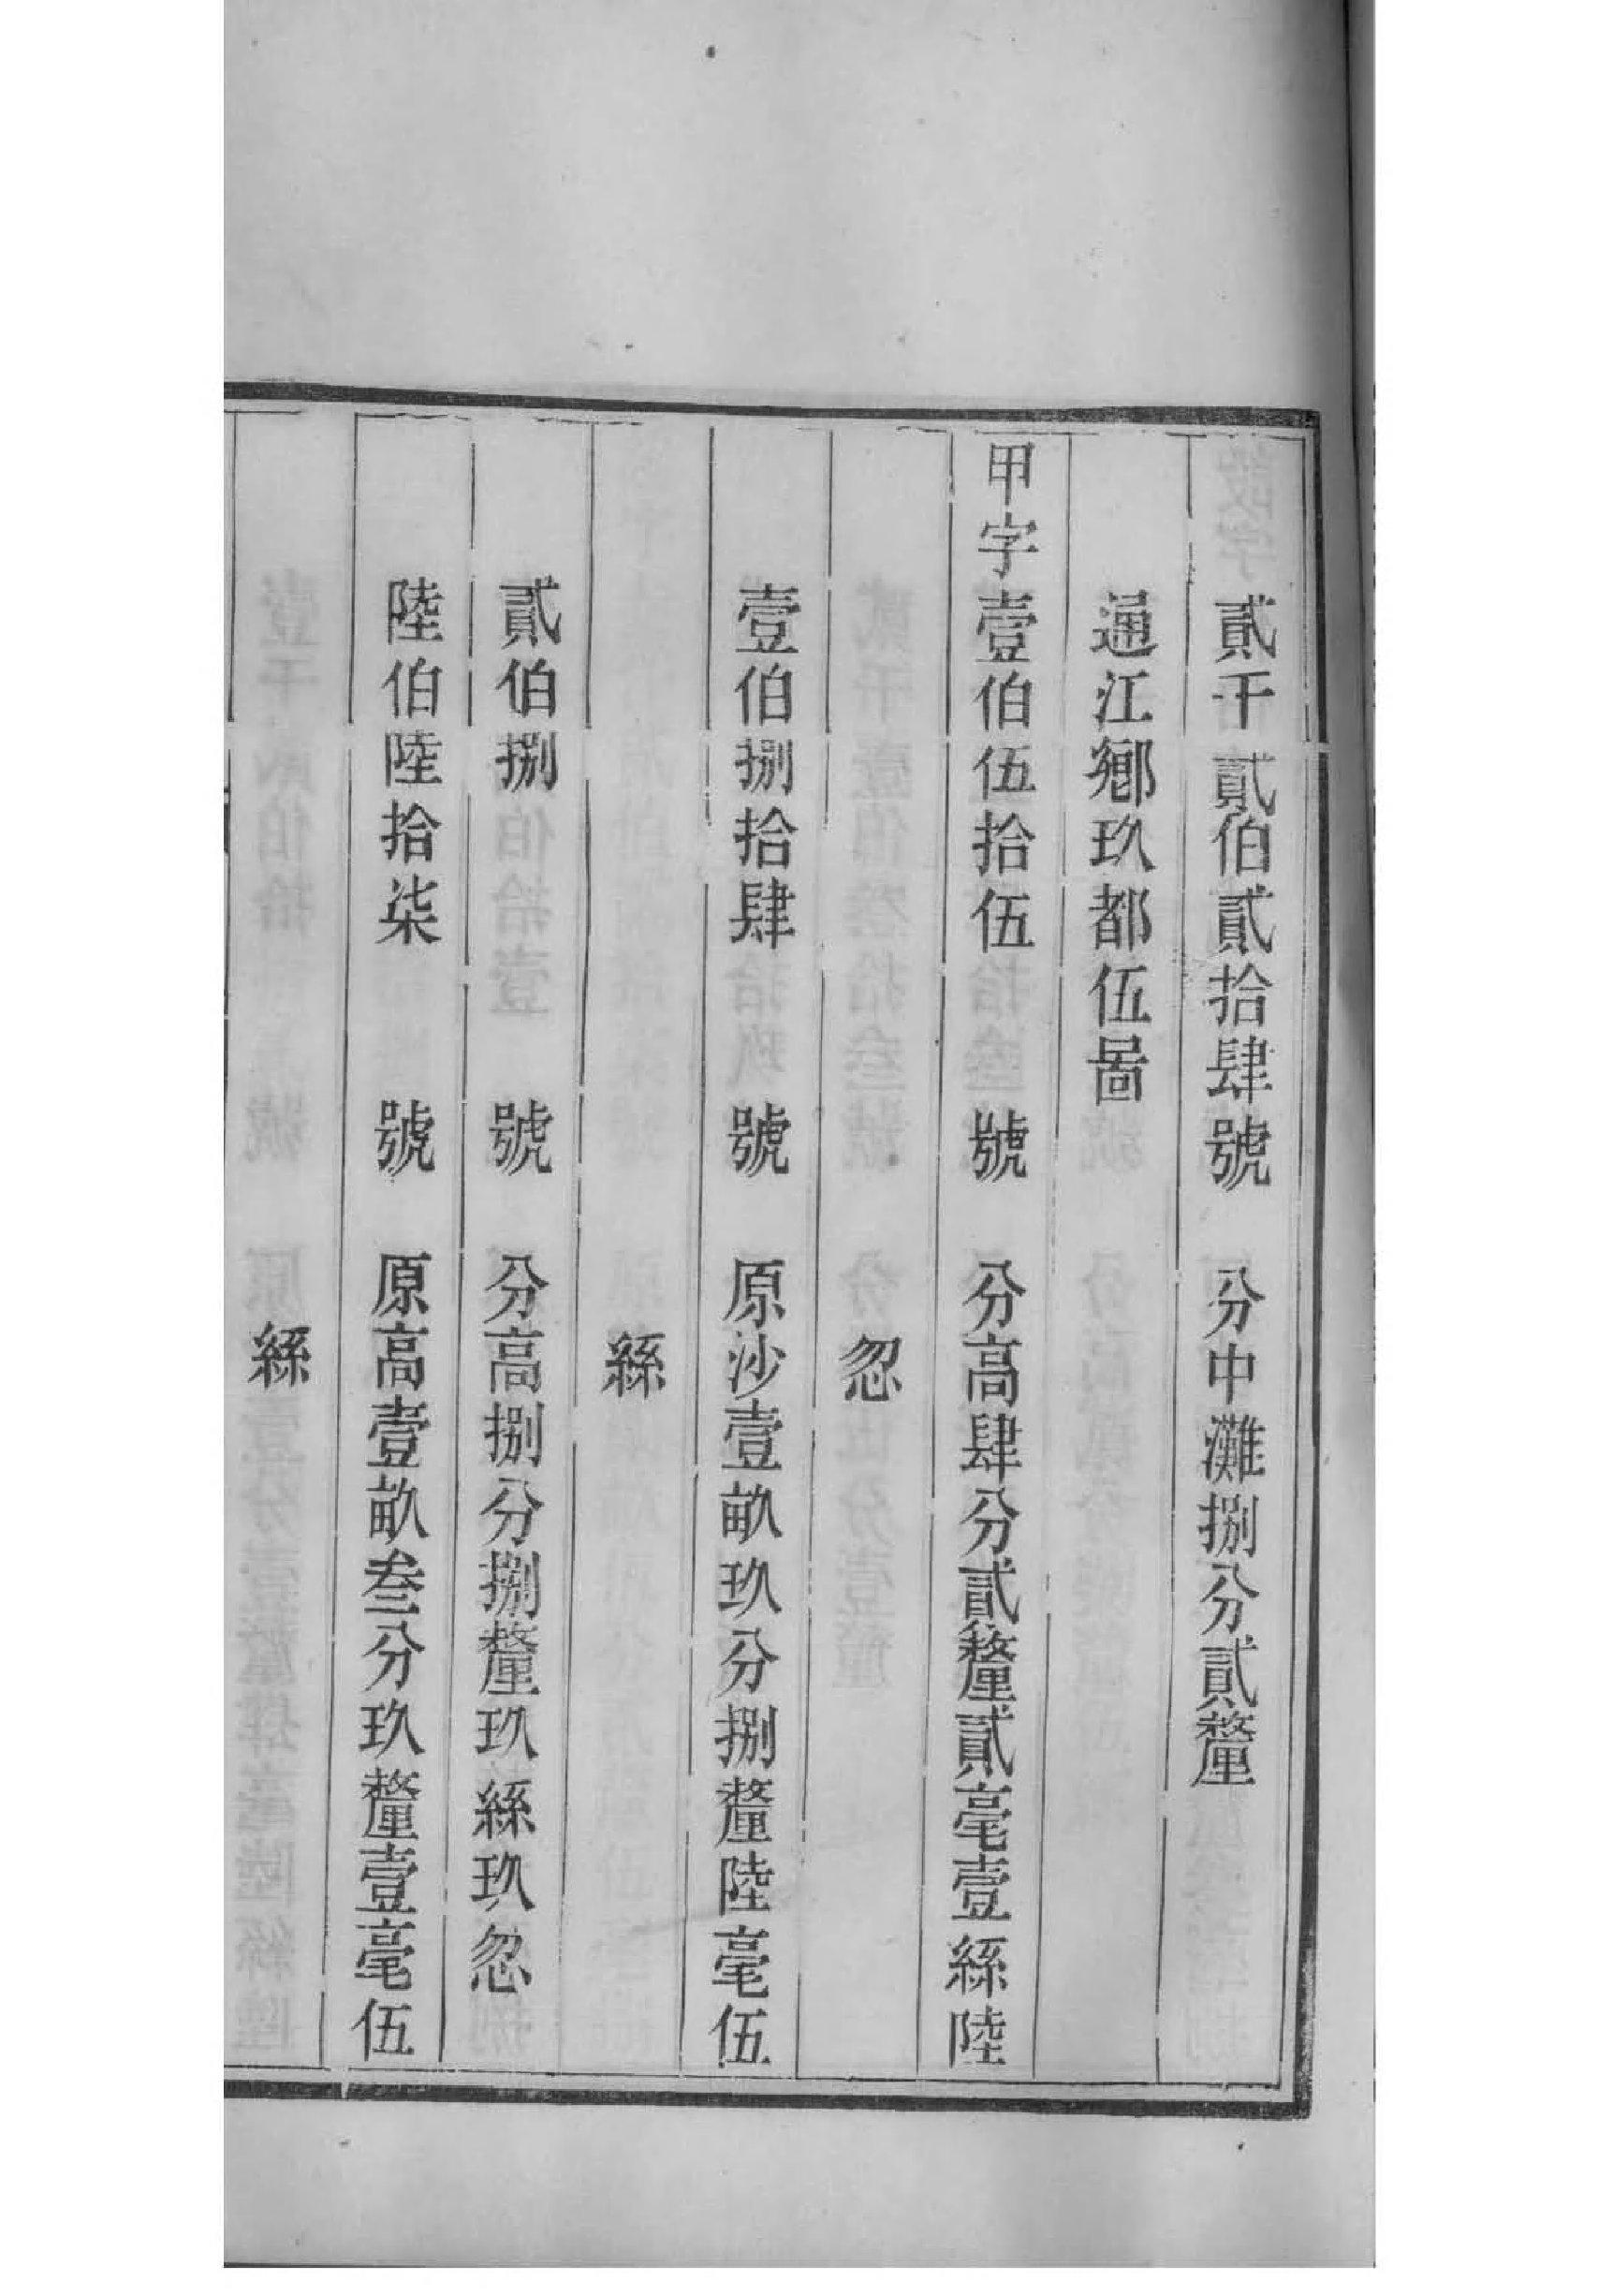 貳千貳伯貳拾肆號　分中灘捌分貳釐
通江鄉玖都伍啚
甲字壹伯伍拾伍　號　分高肆分貳釐貳毫壹絲陸
忽
壹伯捌拾肆　號　原沙壹畝玖分捌釐陸毫伍
絲
貳伯捌　號　分高捌分捌釐玖絲玖忽
陸伯陸拾柒　號　原高壹畝叁分玖釐壹毫伍
絲